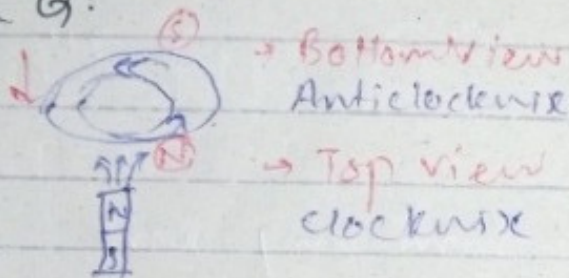 Q.
S → Bottom View
Anticlockwix
N → Top View
Clockwix
N
S